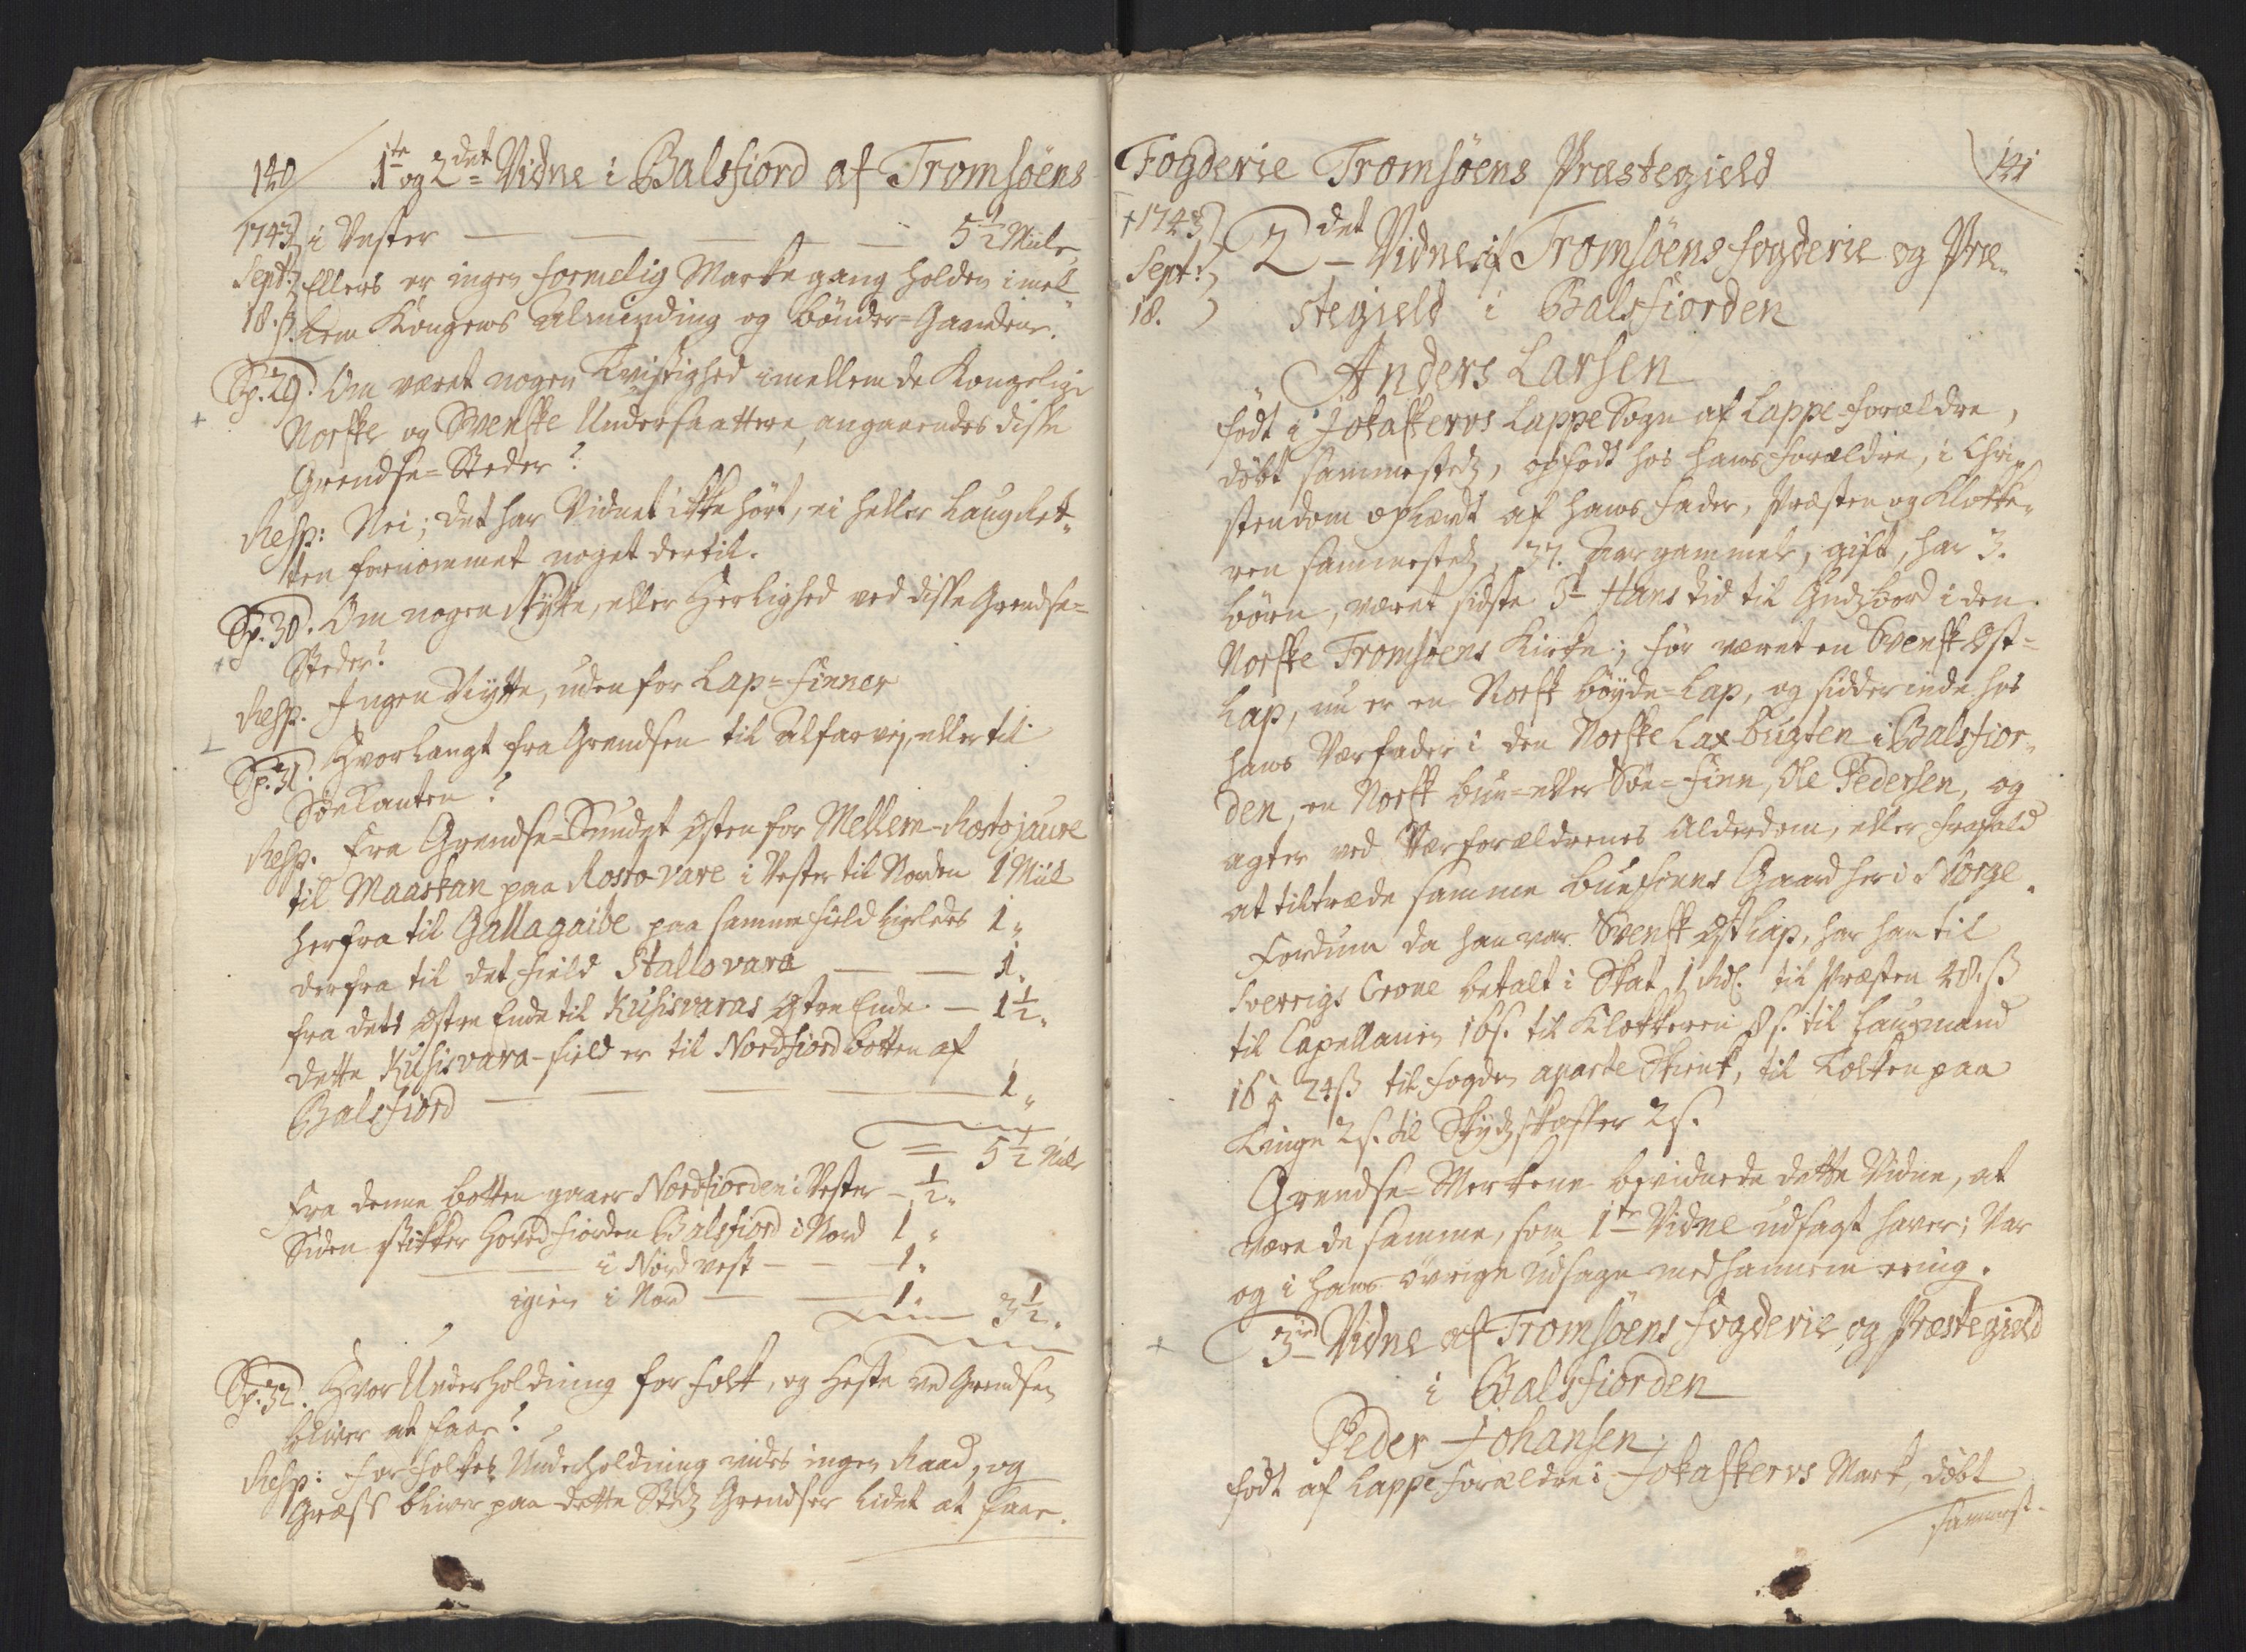 140 1te og 2det Vidne i Balsfiord af Tromsöens
1743 i Vester — — — — 5 1/2 Miile
Septr. Ellers er ingen formelig Markegang holden imel-
18. lem Kongens Alminding og bönder-Gaardene.
Sp. 29. Om været nogen Tvistighed imellem de Kongelige
Norske og Svenske Undersaattere, angaaendes disse
Grendse-Steder?
Resp: Nei; det har Vidnet ikke hört, ei heller Laugret-
ten fornommet noget dertil.
Sp. 30. Om nogen Nytte, eller Herlighed ved disse Grendse-
Steder?
Resp. Ingen Nytte, uden for Lap-finner
Sp. 31. Hvor langt fra Grendsen til Alfarvej, eller til
Söekanten?
Resp. Fra Grendse-Sundet Östen for Mellem-Rostojaure
til Maaskan paa Rosto vare i Vester til Norden 1 Miil
herfra til Gallagaise paa samme field ligeledes 1 "
derfra til det field Stallovara — — 1 "
fra dets östre Ende til Kuhisvaras östre Ende — 1 1/2 "
dette Kuhisvara-field er til Nordfiord botten af
Balsfiord — — — — 1 "
= 5 1/2 Miile
Fra denne botten gaaer Nordfiorden i Vester — 1/2 "
Siden stikker Hovedfiorden Balsfiord i Nord 1 "
— — i Nordvest — — 1 "
igien i Nord — — 1 " 3 1/2 "
Sp. 32. Hvor Underholdning for folk, og heste ved Grendsen
bliver at faae?
Resp: For folkes Underholdning vides ingen Raad, og
Græss bliver paa dette Stedz Grendser lidet at faae.
Fogderie Tromsöens Præstegield 141
1743 2det Vidne af Tromsöens fogderie og Præ-
Septr. stegield i Balsfiorden
18.
Anders Larsen
födt i Jokaskervs Lappe Sogn af Lappe-forældre,
döbt sammestedz, opfödt hos hans forældre, i Chri-
stendom oplært af hans fader, Præsten og Klokke-
ren sammestedz, 37. Aar gammel, gift, har 3.
börn, været sidste St Hans tid til Gudzbord i den
Norske Tromsöens Kirke; för været en Svensk Öst-
Lap, nu er en Norsk böyde-Lap, og sidder inde hos
hans Værfader i den Norske Laxbugten i Balsfior-
den, en Norsk bue- eller Söe-finn, Ole Pedersen, og
agter ved Værforældrenes Alderdom, eller frafald
at tiltræde samme buefinns Gaard her i Norge.
Fordum da han var Svensk Öst Lap, har han til
Sverrigs Crone betalt i Skat 1 Rdl. til Præsten 28 ß
til Capellanen 16 s. til Klokkeren 8 s. til Laugmand
16 a 24 ß til fogden aparte Skienk, til Tolken paa
Tinge 2 s. til Skydzskaffer 2 s.
Grendse-Merkene bevidnede dette Vidne, at
være de samme, som 1te Vidne udsagt haver; Var
og i hans övrige Udsagn med hannem eenig.
3die Vidne af Tromsöens Fogderie og Præstegield
i Balsfiorden
Peder Johansen
födt af Lappe forældre i Jokaskervs Mark, döbt
sammest-